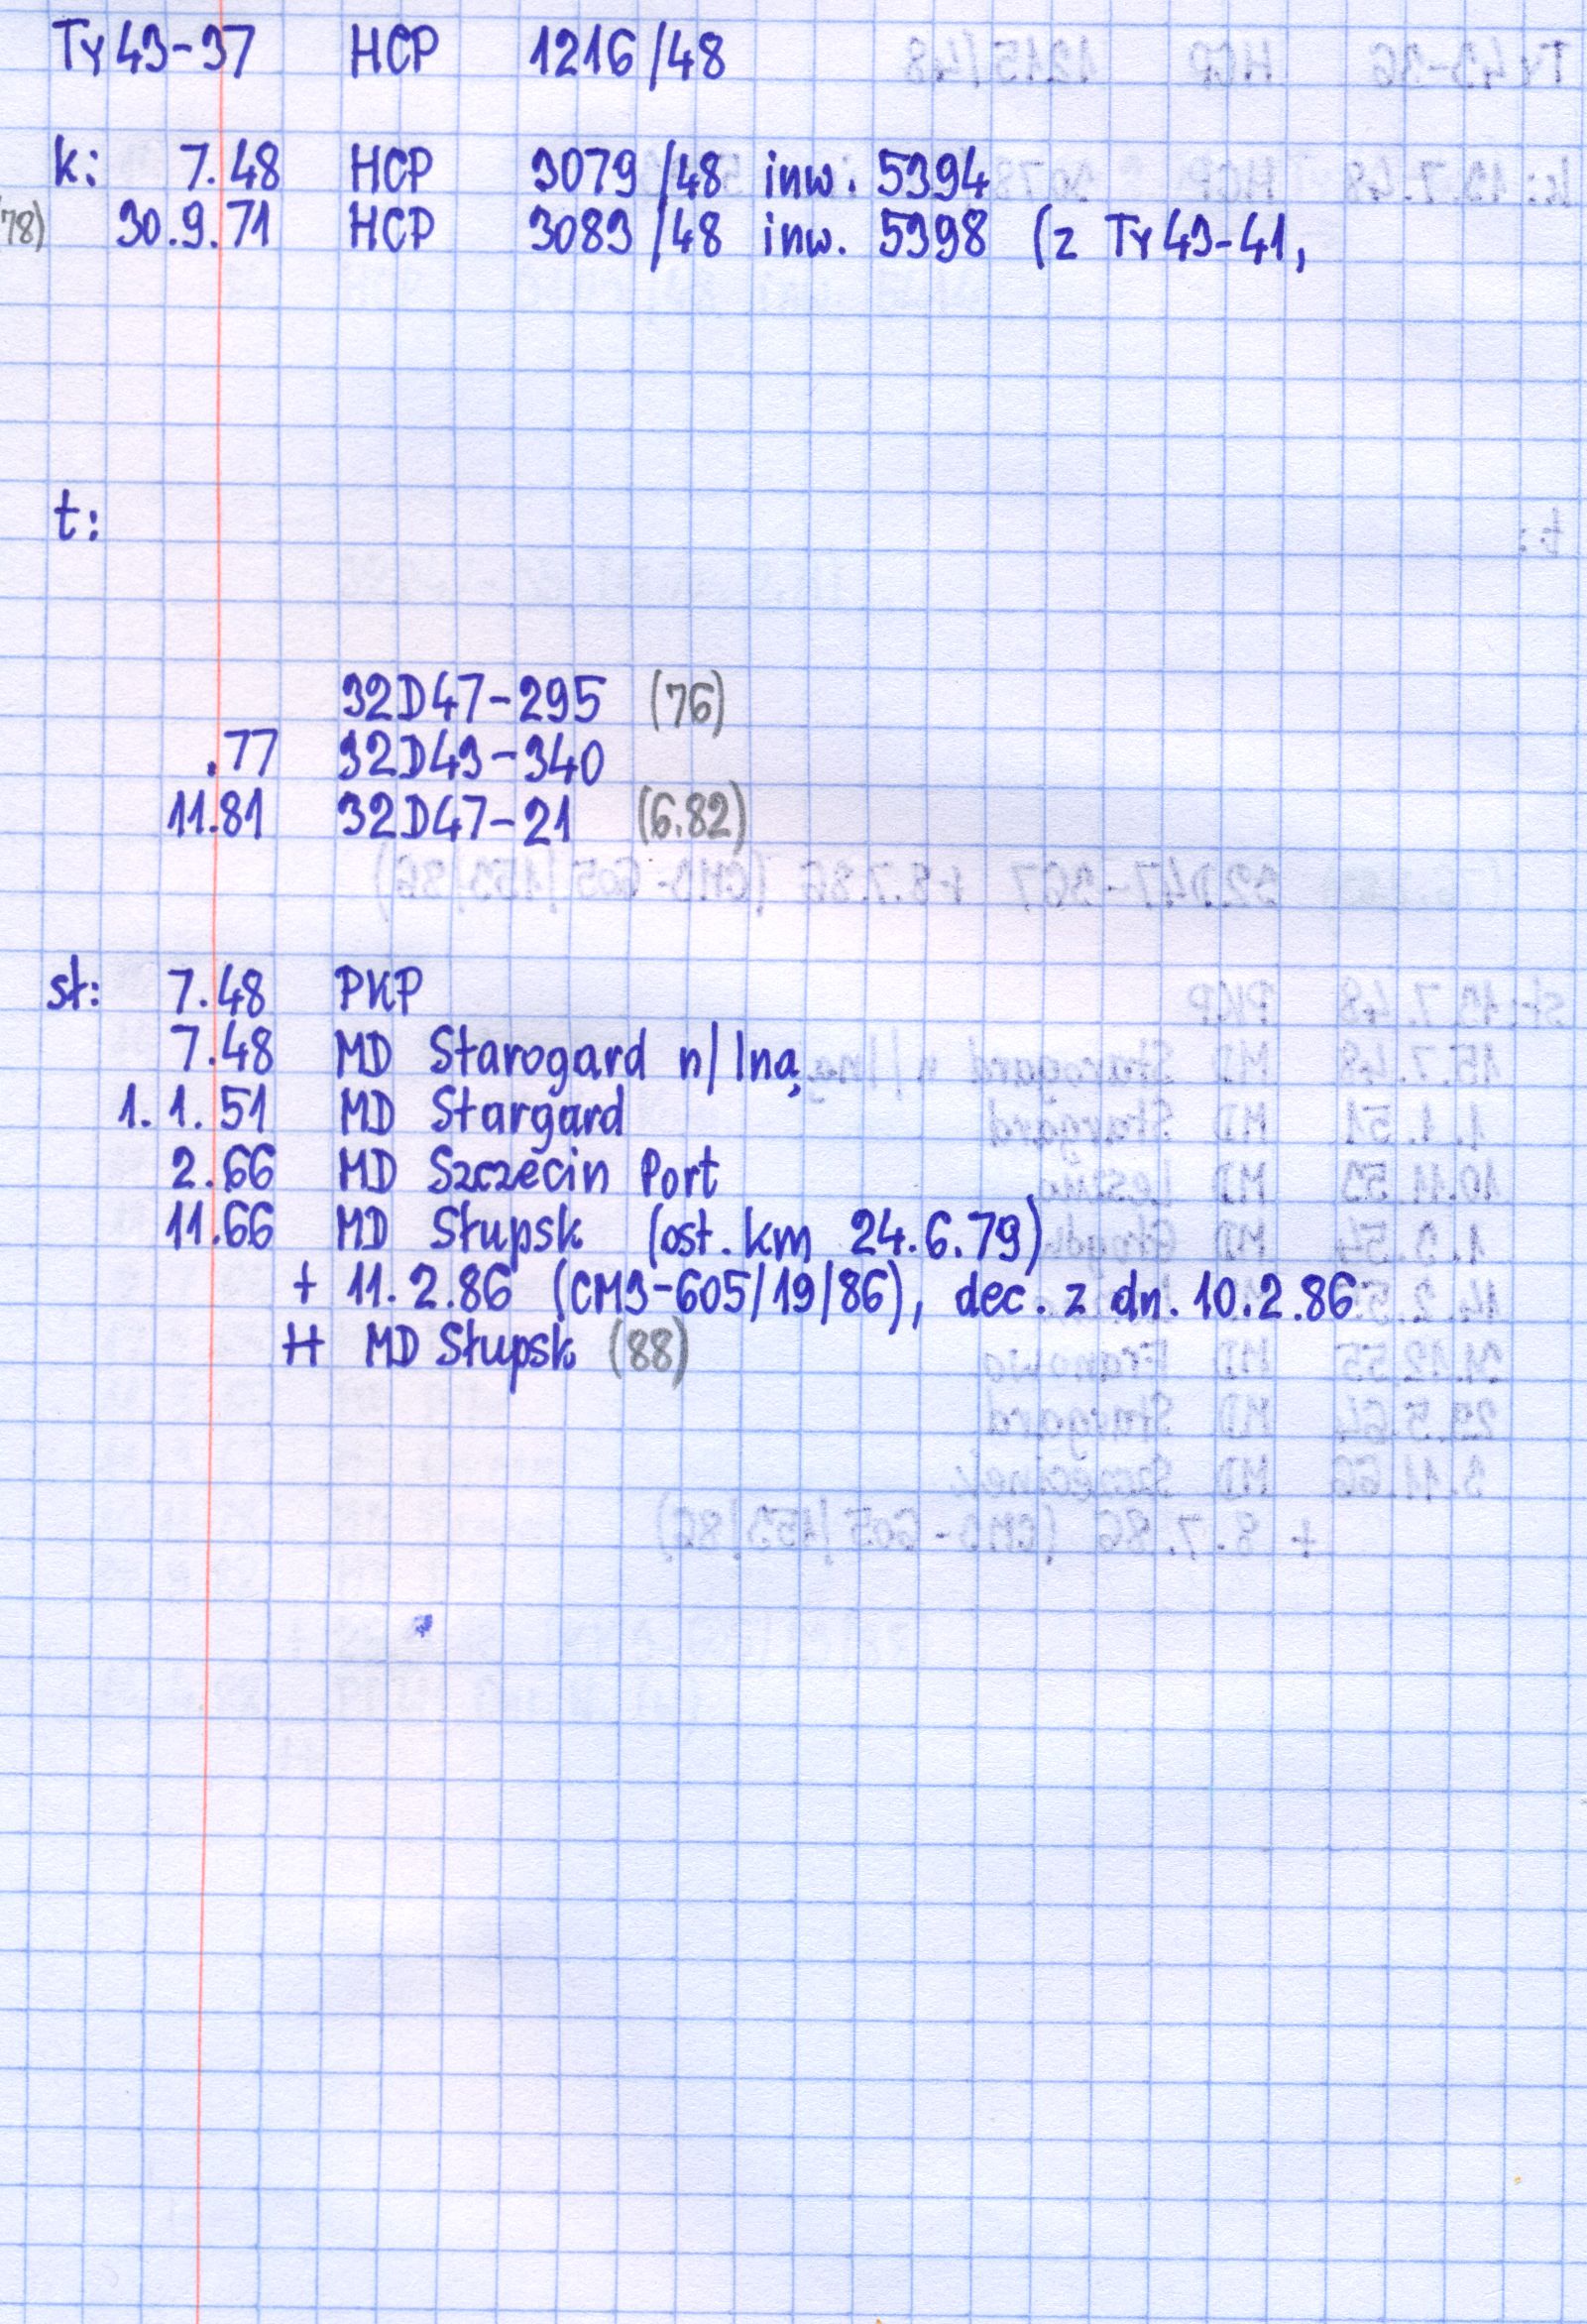 Ty43-37 HCP 1216/48
k: 7.48 HCP 3079/48 inw. 5394
78) 30.9.71 HCP 3083/48 inw. 5398 (z Ty43-41,
t:
32D47-295 (76)
.77 32D43-340
11.81 32D47-21 (6.82)
st: 7.48 PKP
7.48 MD Starogard n/Iną
1.1.51 MD Stargard
2.66 MD Szczecin Port
11.66 MD Słupsk (ost. km 24.6.79)
+ 11.2.86 (CM3-605/19/86), dec. z dn. 10.2.86
++ MD Słupsk (88)